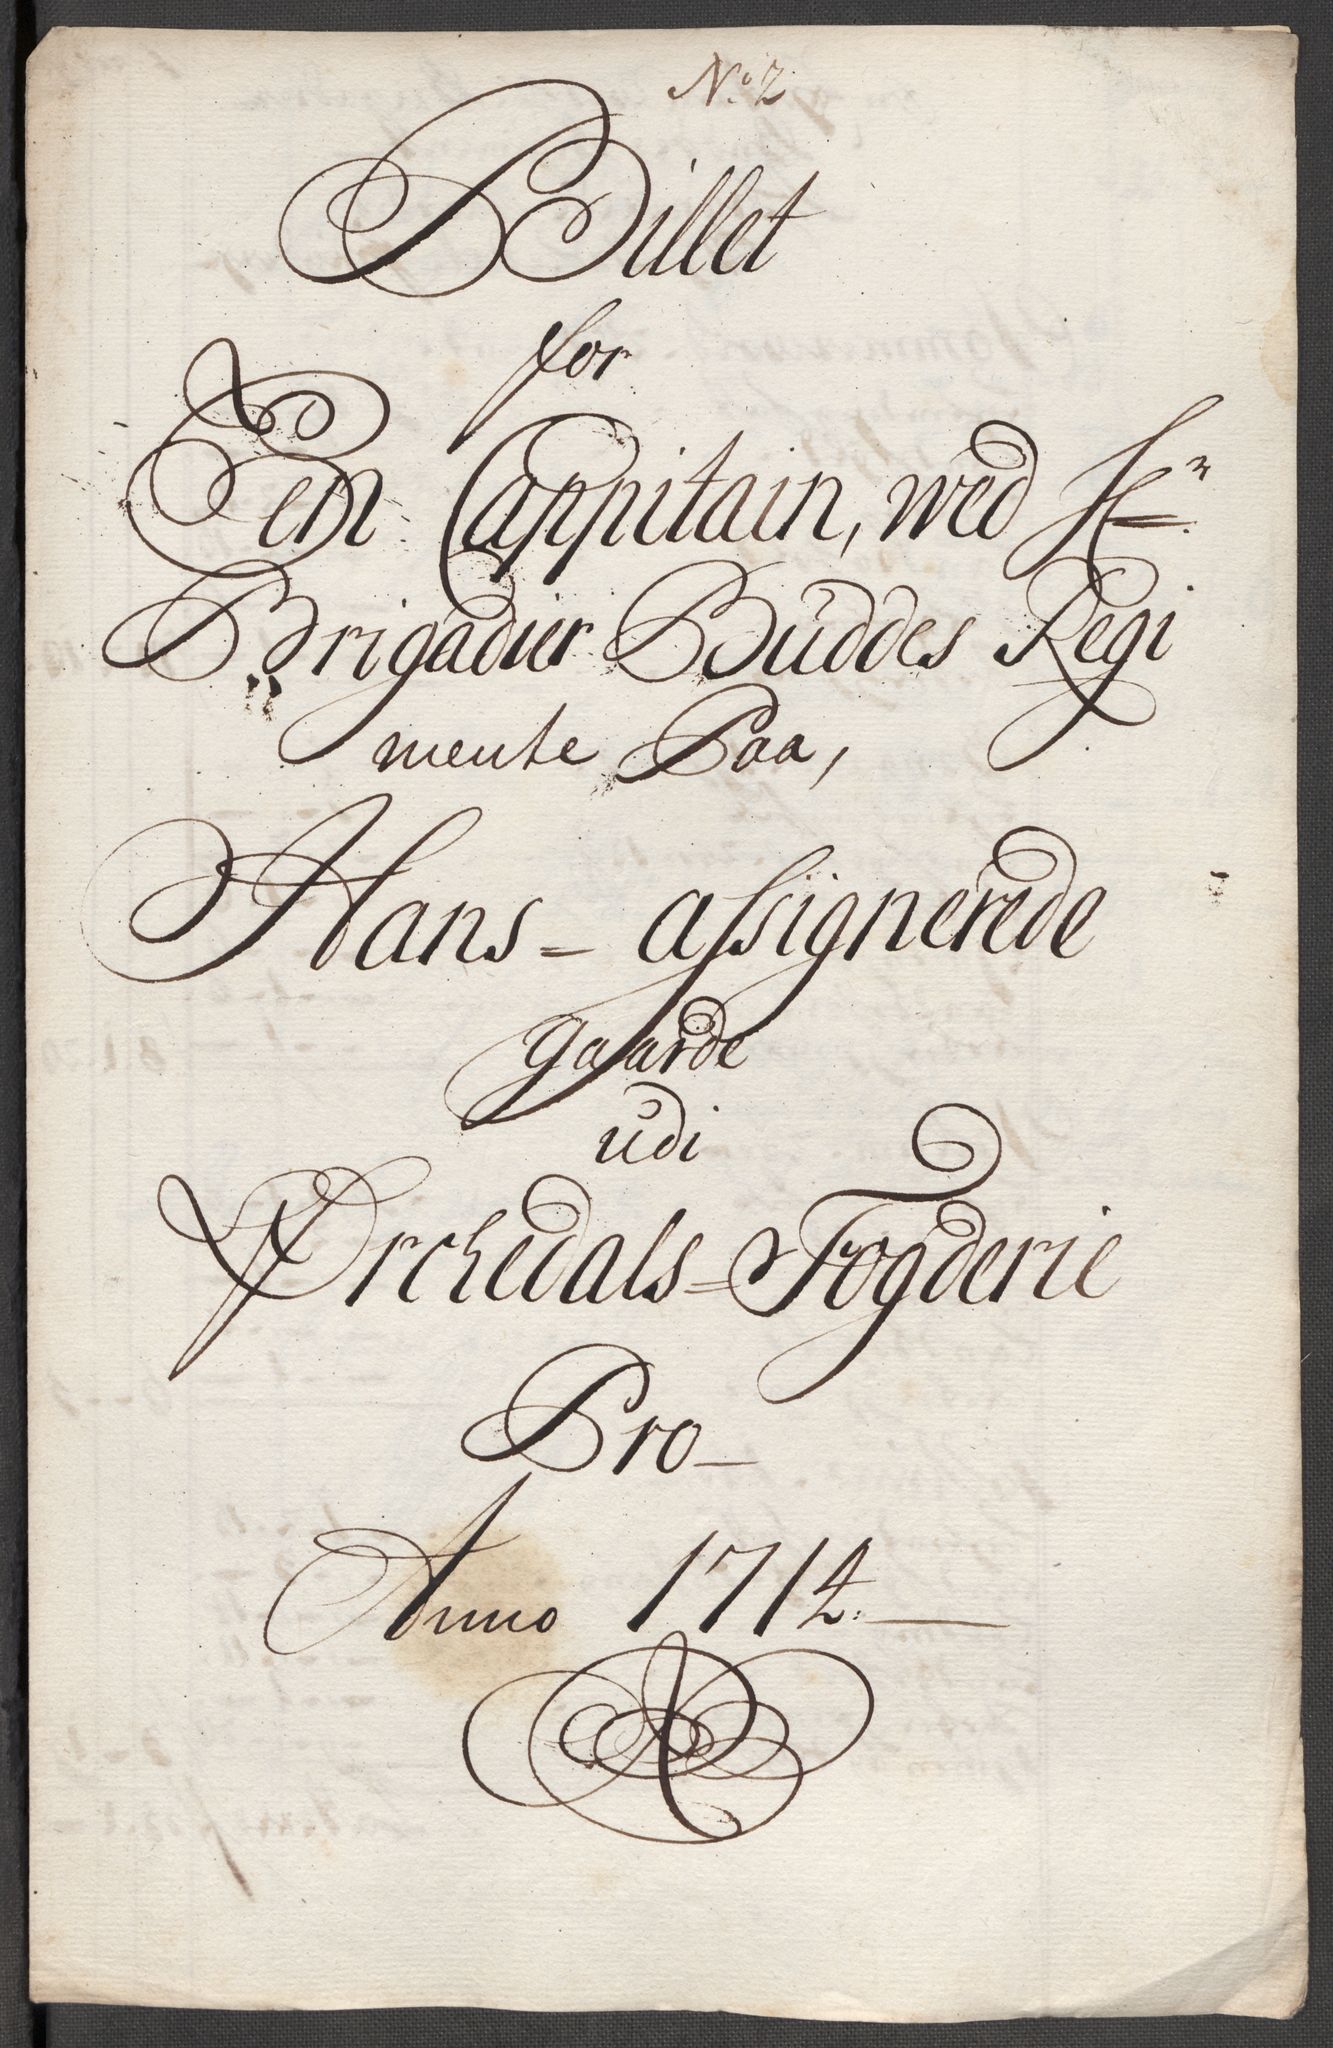 No. 2
Billet
for
Een Cappitain, wed Hr.
Brigadier Buddes Regi
mente Paa,
Hans = assignerede
gaarde
udi
Orchedals = Fogderie
Pro
Anno 1714.